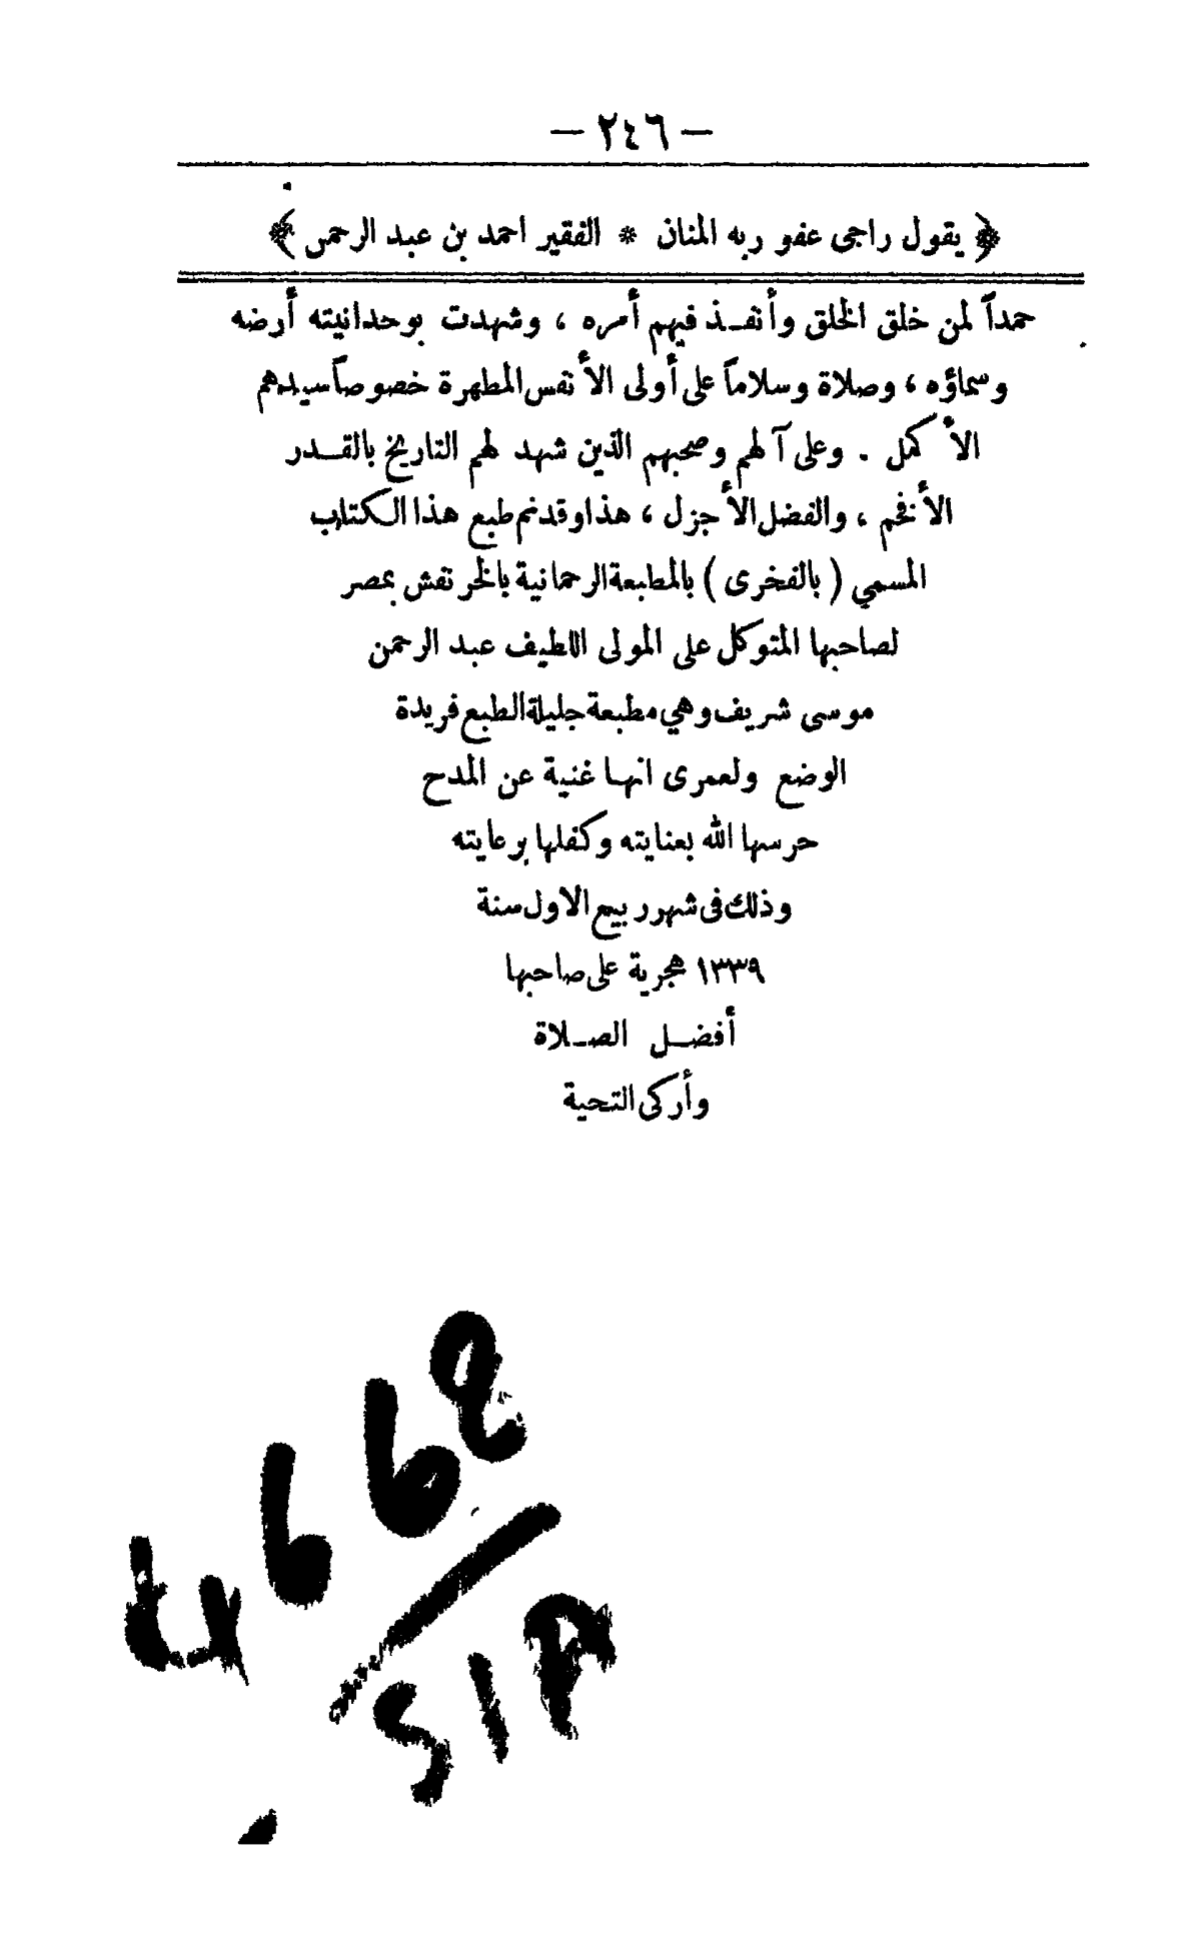 — ٢٤٦ —
﴿ يقول راجى عفو ربه المنان * الفقير احمد بن عبد الرحمن ﴾
حمداً لمن خلق الخلق وأنفـذ فيهم أمره ، وشهدت بوحدانيته أرضه
وسماؤه ، وصلاة وسلاماً على أولى الأنفس المطهرة خصوصاً سيدهم
الأكمل . وعلى آلهم وصحبهم الذين شهد لهم التاريخ بالقـدر
الأفخم ، والفضل الأجزل ، هذا وقد تم طبع هذا الكتاب
المسمي ( بالفخرى ) بالمطبعة الرحمانية بالخرنفش بمصر
لصاحبها المتوكل على المولى اللطيف عبد الرحمن
موسى شريف وهي مطبعة جليلة الطبع فريدة
الوضع ولعمرى انهـا غنية عن المدح
حرسها الله بعنايته وكفلها برعايته
وذلك فى شهر ربيع الاول سنة
١٣٣٩ هجرية على صاحبها
أفضـل الصـلاة
وأزكى التحية